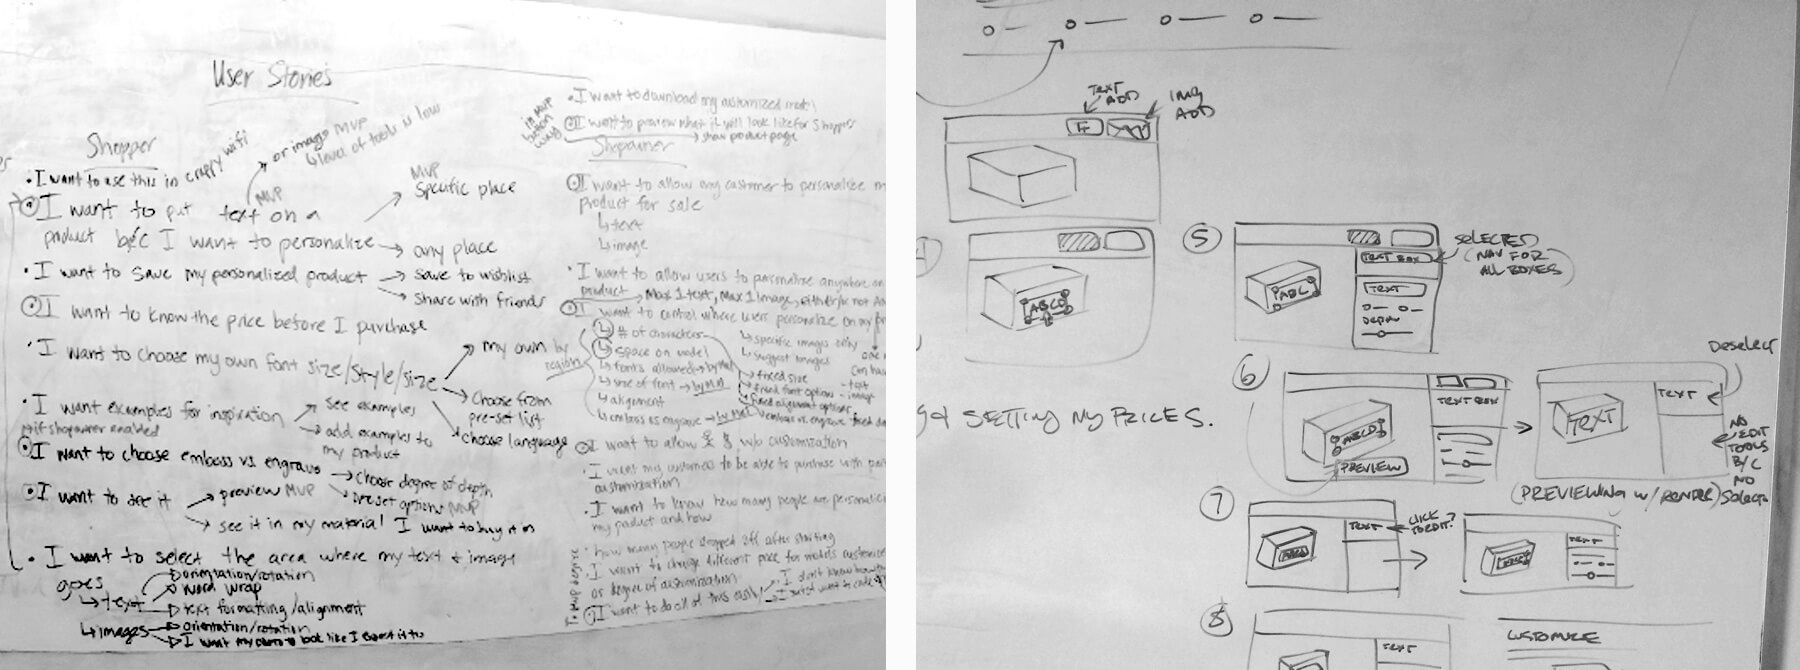 User Stories
Shopper
• I want to use this in crappy wifi
→ or image MVP
↳ level of tools is low
MVP
I want to put text on a
product b/c I want to personalize
MVP
→ specific place
→ any place
• I want to save my personalized product → save to wishlist
→ share with friends
I want to know the price before I purchase
• I want to choose my own font size/style/size
→ my own
→ choose from
pre-set list
→ choose language
• I want examples for inspiration → see examples
if shopowner enabled
→ add examples to
my product
I want to choose emboss vs engrave
→ choose degree of depth
→ preset options MVP
I want to see it → preview MVP
→ see it in my material I want to buy it in
• I want to select the area where my text + image
goes
↳ text
→ orientation/rotation
→ word wrap
→ text formatting/alignment
↳ images → orientation/rotation
→ I want my photo to look like I expect it to
• I want to download my customized model
I want to preview what it will look like for shoppers
→ show product page
Shopowner
I want to allow my customer to personalize
product for sale
↳ text
↳ image
• I want to allow users to personalize anywhere on
product → Max 1 text, Max 1 image,
I want to control where users personalize on my
region
↳ # of characters
↳ space on model
↳ fonts allowed
↳ size of font
↳ alignment
↳ emboss vs engrave
↳ specific images only
↳ suggest images
fixed size
fixed font options
fixed alignment options
I want to allow w/o customization
• I want my customers to be able to purchase with
customization
• I want to know how many people are
my product and how
• how many people dropped off after starting
• I want to change different price for models
or degree of customization
I want to do all of this easily
TEXT
ADD
IMG
ADD
T
ABCD
5
SELECTED
(NAV FOR
ALL BOXES)
TEXT BOX
ABC
TEXT
DEPTH
SETTING MY PRICES.
6
TEXT BOX
ABCD
PREVIEW
DESELECT
TEXT
TEXT
NO
EDIT
TOOLS
B/C
NO
(PREVIEWING W/ RENDER)
7
TEXT
CLICK
TO EDIT?
TEXT
8
TEXT
CUSTOMIZE